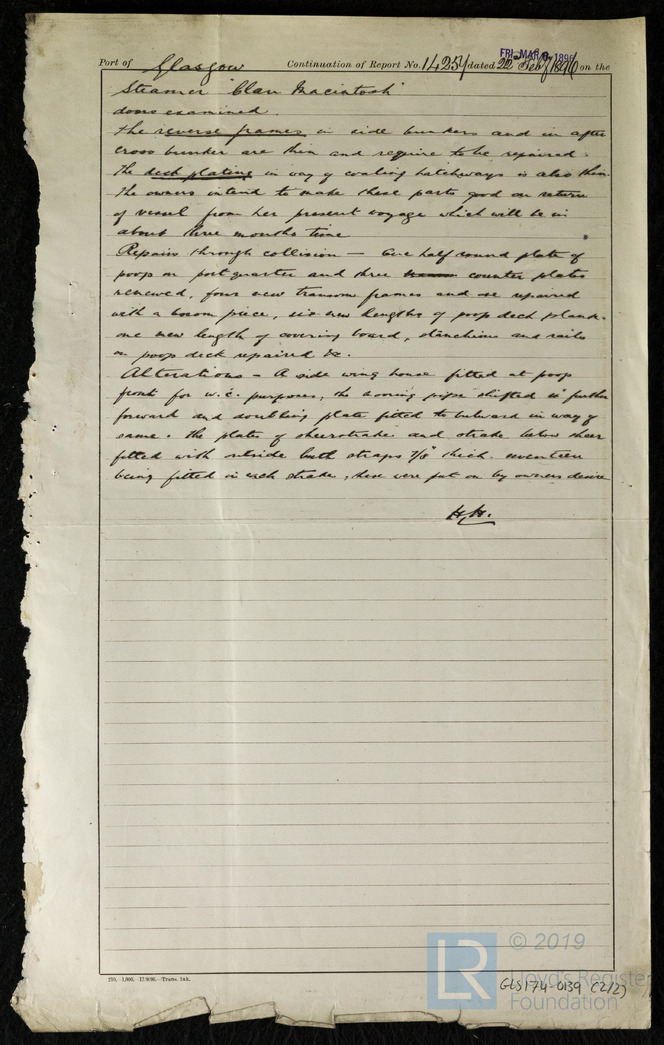 FRI. MAR 6 1896
Port of Glasgow Continuation of Report No. 14254 dated 22nd Feby 1896 on the
Steamer "Clan Macintosh"
doors examined.
The reverse frames in side bunkers and in after
cross bunker are thin and require to be repaired.
The deck plating in way of coaling hatchways is also thin
The owners intend to make these parts good on return
of vessel from her present voyage which will be in
about three months time
Repairs through collision — One half round plate of
poop on port quarter and three counter plates
renewed, four new transom frames and one repaired
with a bosom piece, six new lengths of poop deck plank.
one new length of covering board, stanchions and rails
on poop deck repaired &c.
Alterations — A side wing house fitted at poop
front for w.c. purposes, the mooring pipe shifted further
forward and doubling plate fitted to bulwark in way of
same. The plates of sheerstrake and strake below sheer
fitted with outside butt straps 7/8" thick. seventeen
being fitted in each strake, these were put on by owners desire
H.H.
210.-1,000.-17/9/95.-Trans. Ink.
LR © 2019
Lloyd's Register
Foundation
GLS174-0139 (2/2)